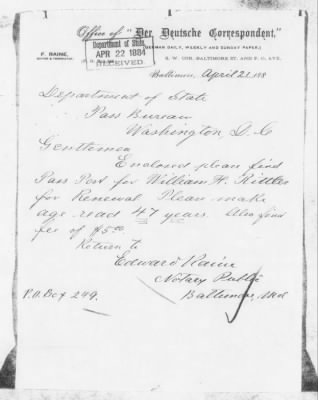 Office of "Der Deutsche Correspondent,"
(GERMAN DAILY, WEEKLY AND SUNDAY PAPER,)
F. RAINE,
EDITOR & PROPRIETOR.
S. W. COR. BALTIMORE ST. AND P. O. AVE.
Department of State,
APR 22 1884
RECEIVED.
Baltimore, April 21. 188
Department of State
Pass Bureau
Washington D. C
Gentlemen
Enclosed please find
Pass Port for William H. Rittler
for Renewal Please make
age read 47 years. Also find
fee of $5.00
Return to
Edward Raine
Notary Public
P.O. Box 249.
Baltimore, Md